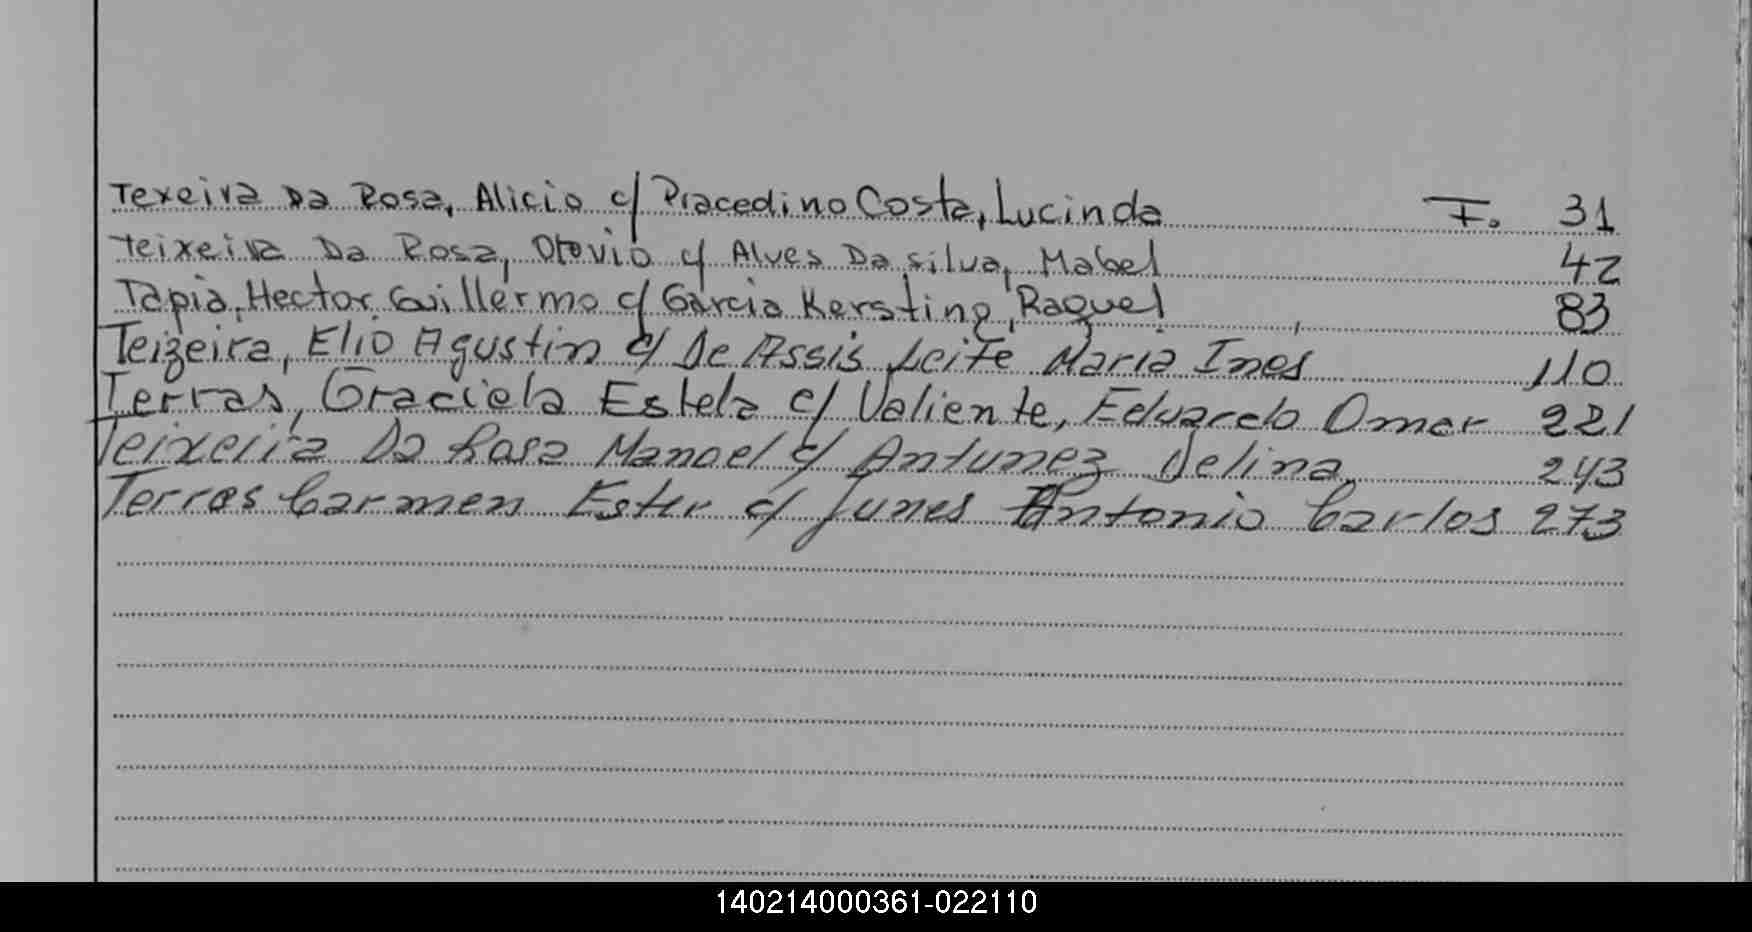 Texeira Da Rosa, Alicio c/ Pracedino Costa, Lucinda F. 31
Teixeira Da Rosa, Otovio c/ Alves Da silva, Mabel 42
Tapia, Hector Guillermo c/ Garcia Kersting, Raquel 83
Teizeira, Elio Agustin c/ De Assis Leite Maria Ines 110
Terras, Graciela Estela c/ Valiente, Eduardo Omar 221
Teixeira Da Rosa Manoel c/ Antunez Delina 243
Terras Carmen Ester c/ Junes Antonio Carlos 273
140214000361-022110